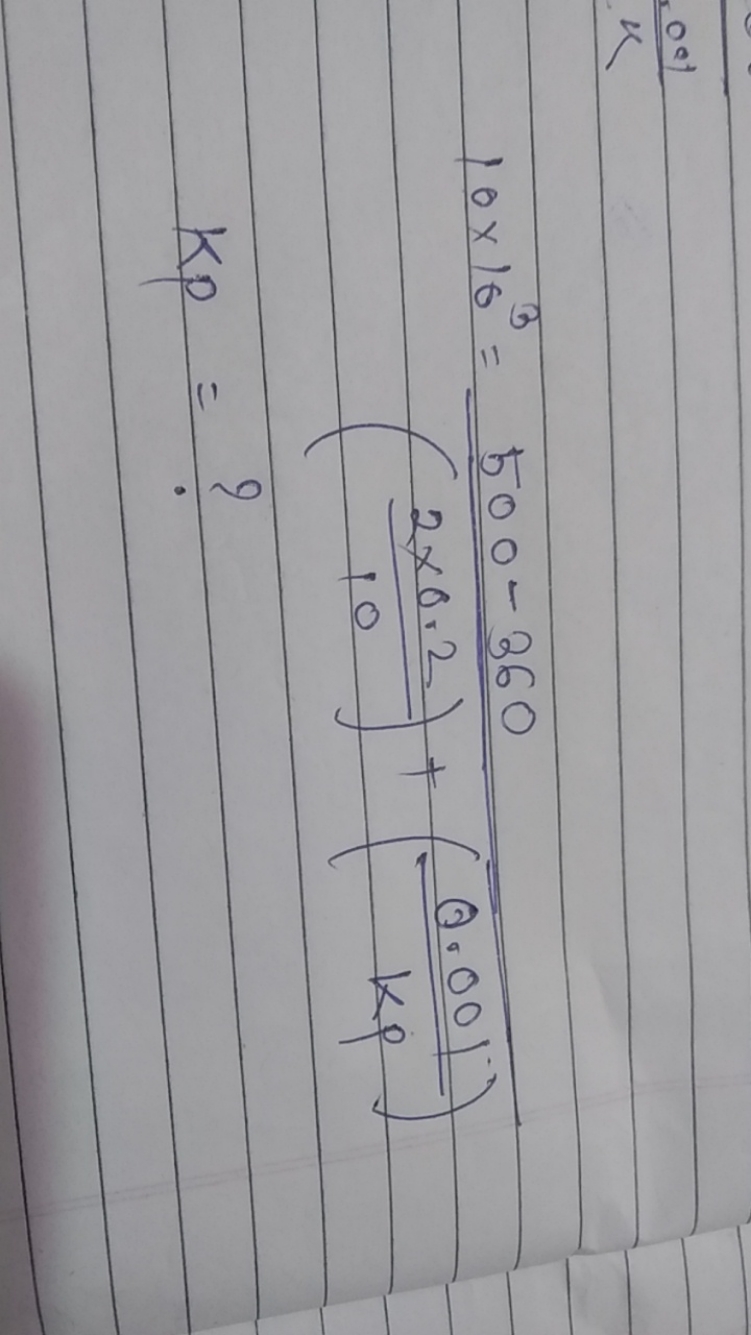 .001
K
10×10³ = 500-360
(2×0.2
10) + (0.001
Kp)
Kp = ?